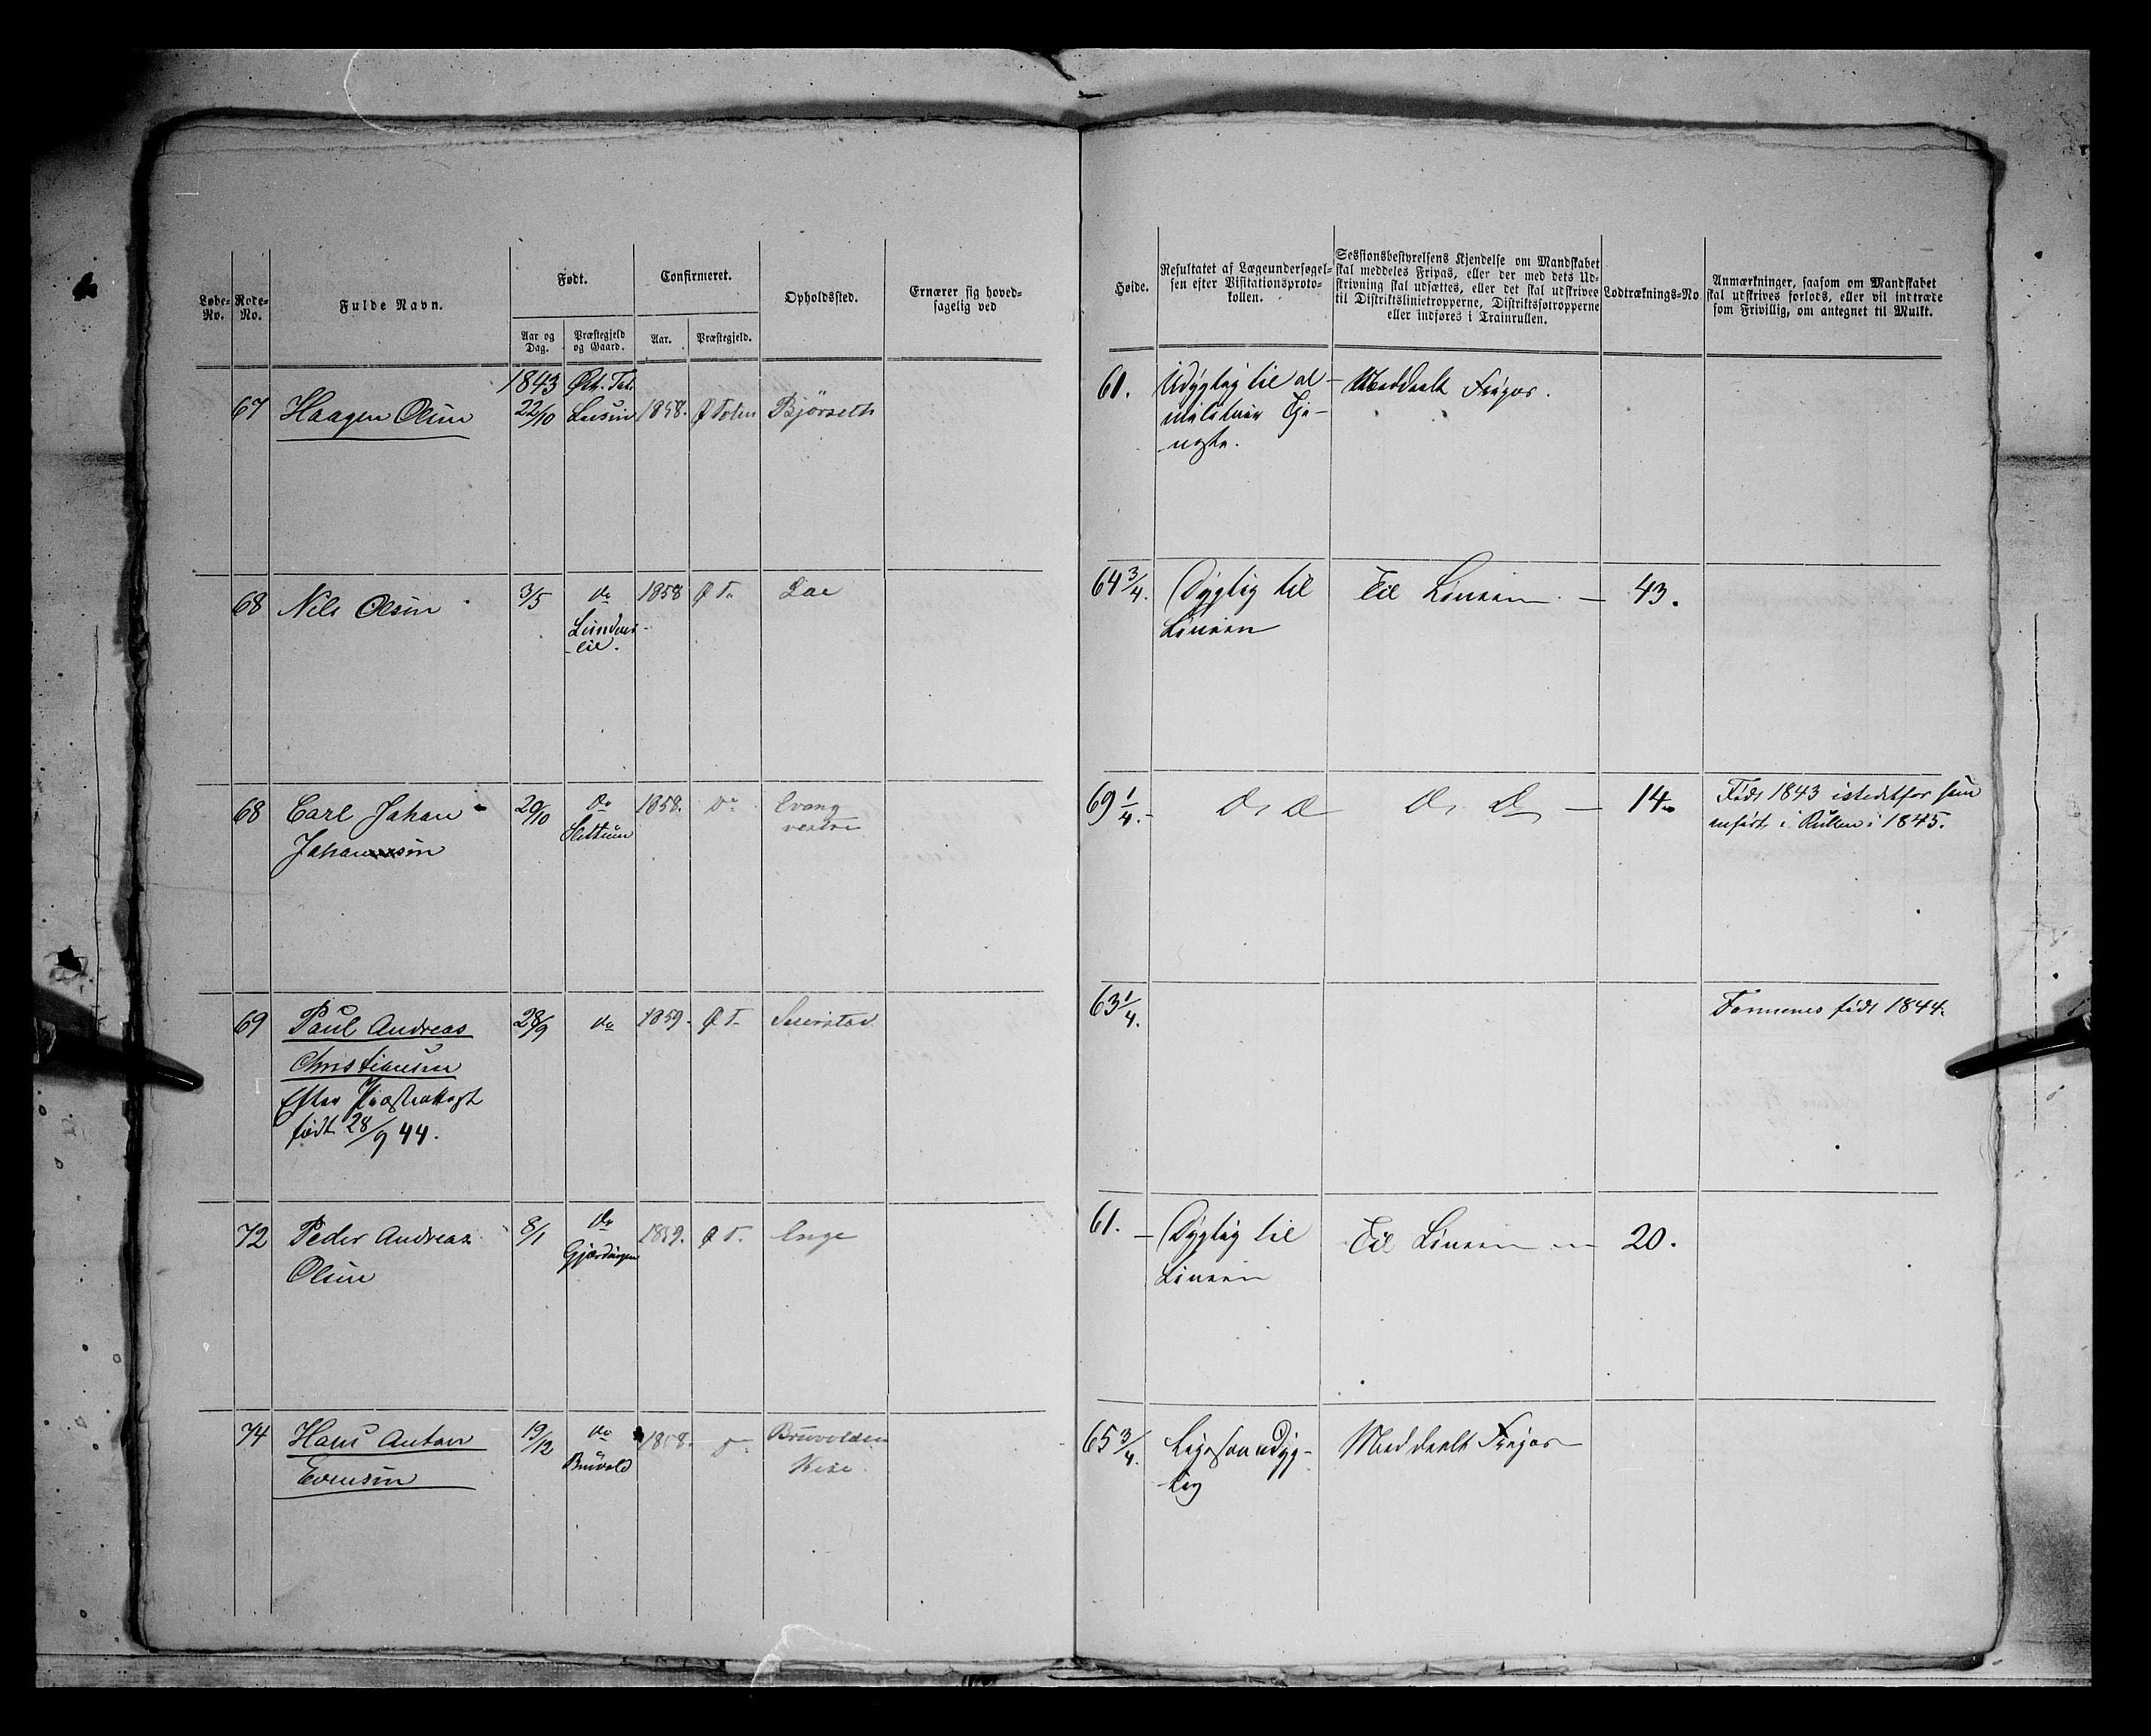 Løbe-No.
Rode-No.
Fulde Navn.
Født.
Aar og Dag.
Præstegjeld og Gaard.
Confirmeret.
Aar.
Præstegjeld.
Opholdssted.
Ernærer sig hovedsagelig ved
Høide.
Resultatet af Lægeundersøgelsen efter Visitationsprotokollen.
Sessionsbestyrelsens Kjendelse om Mandskabet skal meddeles Fripas, eller der med dets Udskrivning skal udsættes, eller det skal udskrives til Distriktslinietropperne, Distriktsfotropperne eller indføres i Trainrullen.
Lodtræknings-No.
Anmærkninger, saasom om Mandskabet skal udskrives forlods, eller vil indtræde som Frivillig, om antegnet til Mulkt.
1843 Øst. Tot.
67 Haagen Olsen 22/10 1858. Ø Toten Bjørseth
61. Udygtig til al militair Tjeneste. Meddeelt Fripas.
68 Nils Olsen 3/5 do 1858 Ø T. Lae
64 3/4. Dygtig til Linien Til Linien 43.
68 Carl Johan 20/10 do 1858. do Evang
Johansen Slettum vestre
69 1/4. Do Do Do Do 14.
Født 1843 istedetfor som
anført i Rullen i 1845.
69 Paul Andreas 28/9 do 1859. Ø T.
Christiansen
Efter Præsteattest
født 28/9 44.
63 1/4. født 1844.
72 Peder Andreas 8/1 do 1859. Ø T. Enge
Olsen Gjærdingen
61. Dygtig til Linien Til Linien 20.
74 Hans Anton 19/12 do 1858. do Bruvolden
Evensen Bruvold
65 3/4. Ligesaa udygtig Meddeelt Fripas